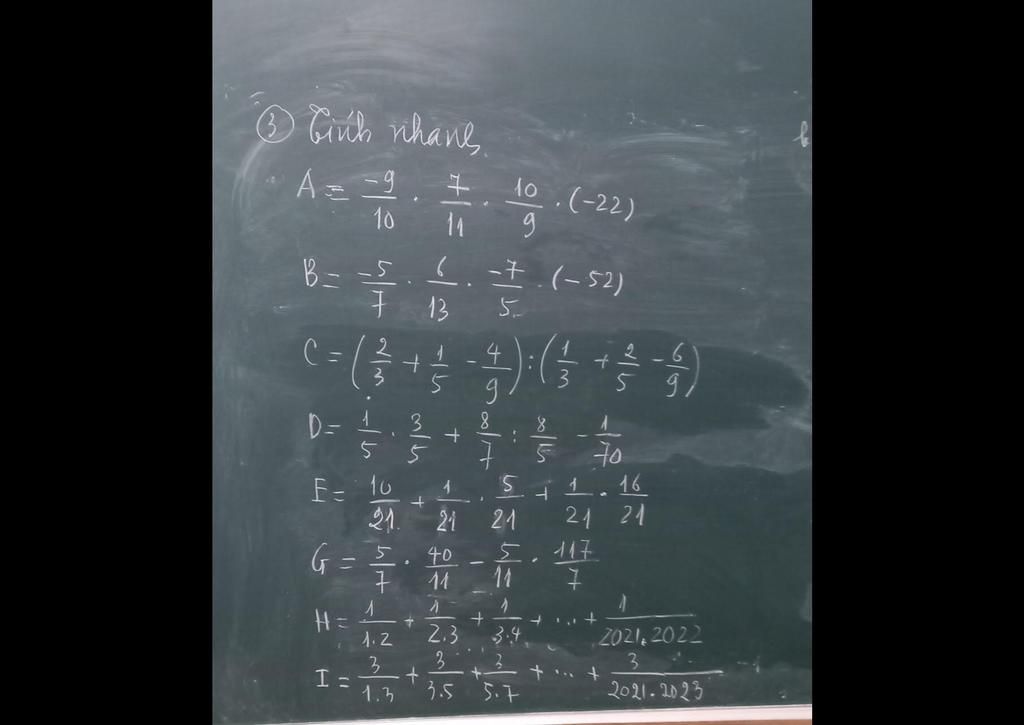 ③ Tính nhanh.
A = \frac{-9}{10} . \frac{7}{11} . \frac{10}{9} . (-22)
B = \frac{-5}{7} . \frac{6}{13} . \frac{-7}{5} . (-52)
C = (\frac{2}{3} + \frac{1}{5} - \frac{4}{9}) : (\frac{1}{3} + \frac{2}{5} - \frac{6}{9})
D = \frac{1}{5} . \frac{3}{5} + \frac{8}{7} : \frac{8}{5} - \frac{1}{70}
E = \frac{10}{21} + \frac{1}{21} . \frac{5}{21} + \frac{1}{21} . \frac{16}{21}
G = \frac{5}{7} . \frac{40}{11} - \frac{5}{11} . \frac{117}{7}
H = \frac{1}{1.2} + \frac{1}{2.3} + \frac{1}{3.4} + ... + \frac{1}{2021.2022}
I = \frac{3}{1.3} + \frac{3}{3.5} + \frac{3}{5.7} + ... + \frac{3}{2021.2023}